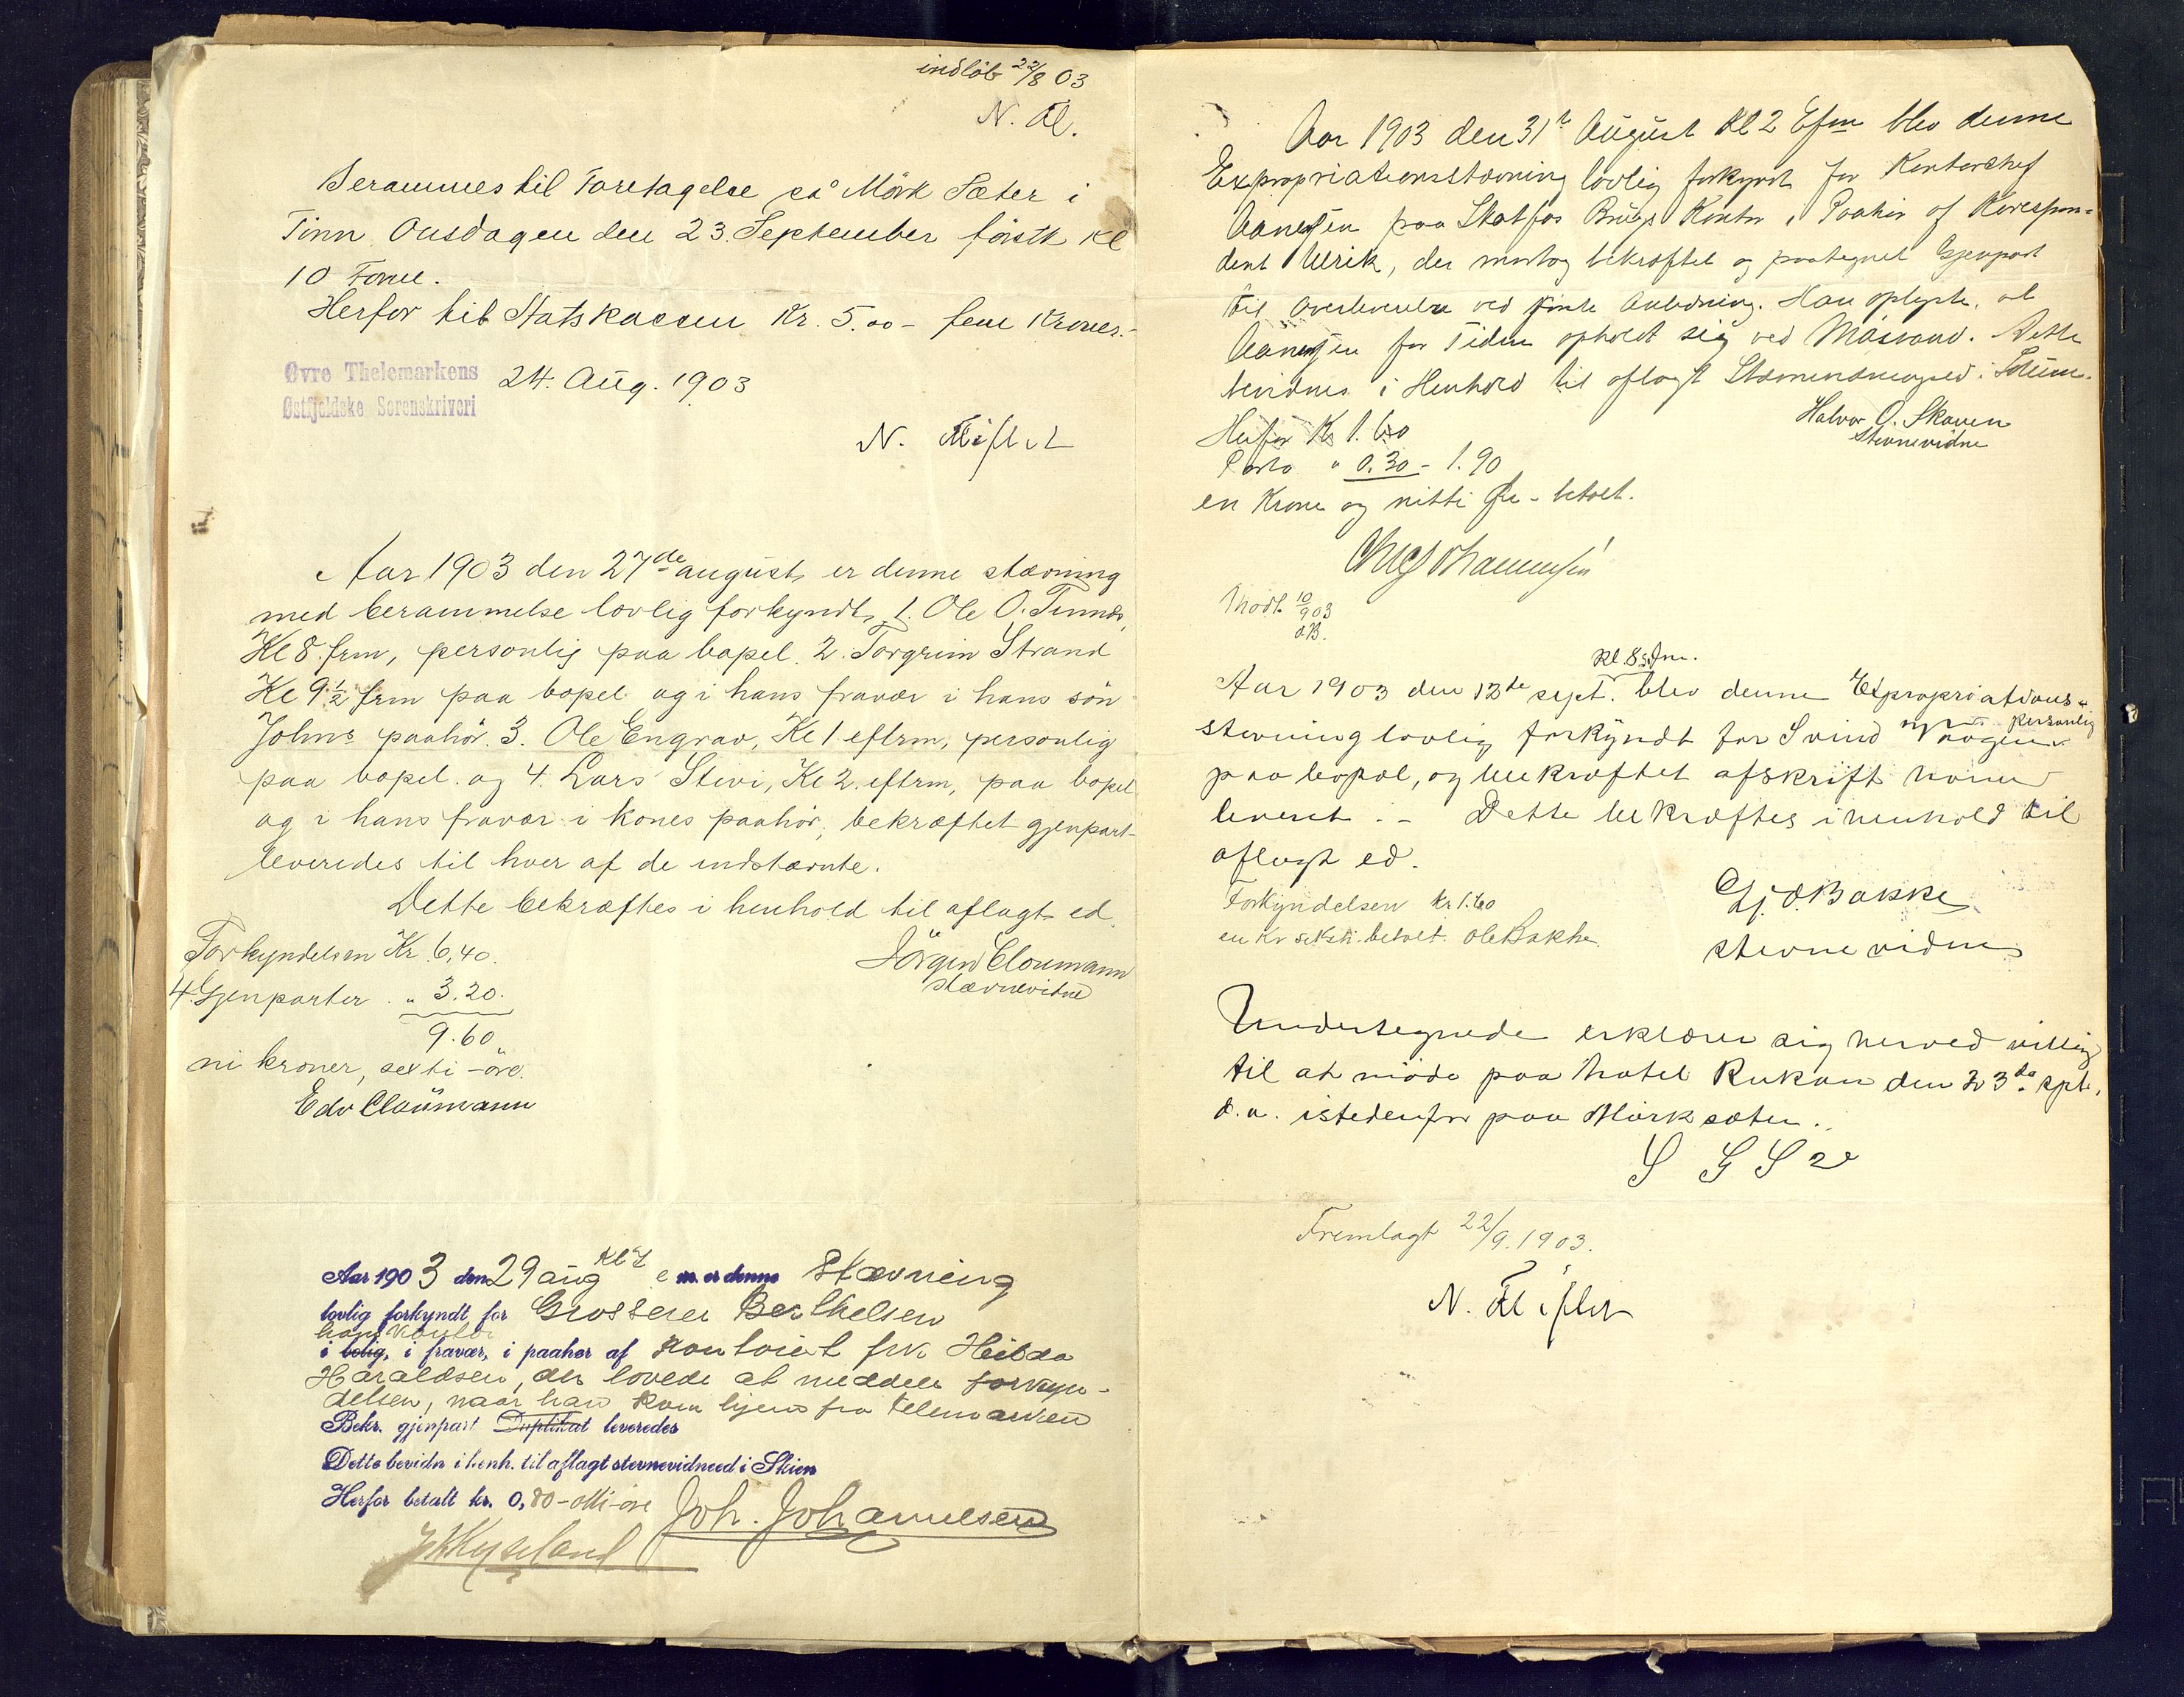 indløb 22/8 03
N. Fl.
Berammes til Foretagelse på Mörk Sæter i
Tinn Onsdagen den 23. September förstk Kl
10 Form.
Herfor til Statskassen Kr. 5.00 - fem Kroner.-
Øvre Thelemarkens
Østfjeldske Sorenskriveri
24. Aug. 1903
N.
Aar 1903 den 27de august er denne stævning
med berammelse lovlig forkyndt, 1. Ole O. Tinnes,
Kl 8. frm, personlig paa bopel. 2. Torgrim Strand
Kl 9½ frm paa bopel og i hans fravær i hans sön
Johns paahör. 3. Ole Engrav, Kl 1 eftrm, personlig
paa bopel. og 4. Lars Stivi, Kl 2. eftrm, paa bopel
og i hans fravær i kones paahör, bekræftet gjenpart
leveredes til hver af de indstævnte.
Dette bekræftes i henhold til aflagt ed.
Forkyndelsen Kr. 6,40.
Jörgen Cloumann
stævnevidne
4 Gjenparter . „ 3.20.
9.60
ni kroner, sexti - öre.
Edv Cloumann
Aar 1903 den 29 aug Kl e m. er denne Stævning
lovlig forkyndt for Grosserer Berthelsen
hans Kontor
i bolig, i fravær, i paahør af Kontorist frk Hilda
Haraldsen, der lovede at meddele forkyn-
delsen, naar han kom hjem fra Telemarken
Bekr. gjenpart Duplikat leveredes
Dette bevidn i henh. til aflagt stevnevidneed i Skien
Herfor betalt kr. 0,80 - otti - øre Joh. Johannesen
Aar 1903 den 31te August Kl 2 Efm blev denne
Expropriationsstævning lovlig forkyndt for Kontorchef
paa Skotfos Brugs Kontor i Paahör af Korespon-
dent Ulrik, der modtog bekræftet og paategnet Gjenpart
til Overleverelse ved förste Anledning. Han oplyste, at
for Tiden opholdt sig ved Måsvand. Dette
bevidnes i Henhold til aflagt Stævnevidneed. Solum.
Halvor O. Skaven
Stevnevidne
Herfor Kr 1.60
Porto „ 0.30 - 1.90
en Krone og nitti Øre - betalt.
Modt. 10/9 03
OB.
Kl. 8 Fm.
Aar 1903 den 13de sept. blev denne Expropriations-
stevning lovlig forkyndt for Svind personlig
paa bopæl, og bekræftet afskrift ham
leveret. - Dette bekræftes i henhold til
aflagt ed.
Forkyndelsen kr. 1.60
en Kr seksti - betalt. Ole Bakke.
Gj. O. Bakke
stevnevidne
Undertegnede erklærer sig herved villig
til at möde paa Hotel Rukan den 23de spt.
d.a. istedenfor paa Mörksæter.
S G S
Fremlagt 22/9.1903.
N.